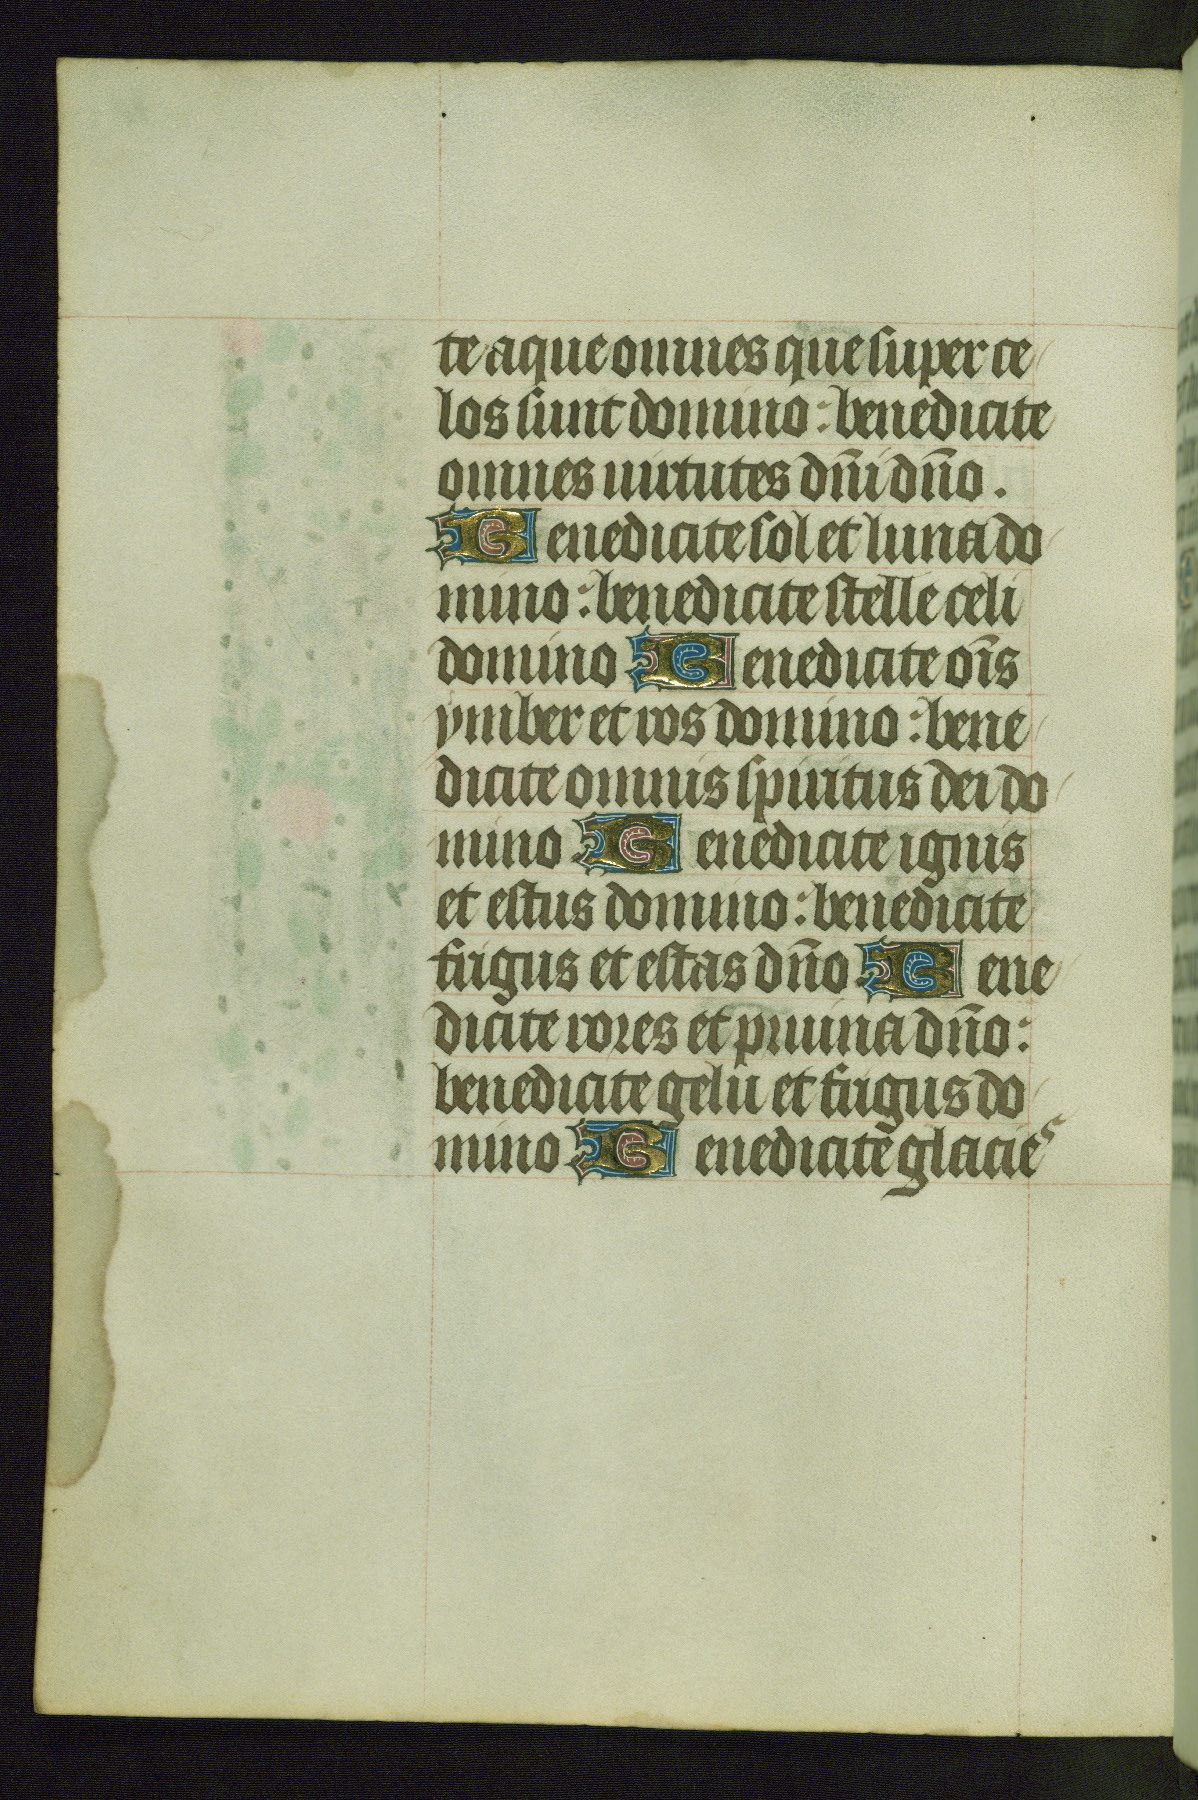 te aque omnes que super ce
los sunt domino : benedicite
omnes uirtutes dn̄i dn̄o .
Benedicite sol et luna do
mino : benedicite stelle celi
domino Benedicite om̄s
ymber et ros domino : bene
dicite omnis spiritus dei do
mino Benedicite ignis
et estus domino : benedicite
frigus et estas dn̄o Bene
dicite rores et pruina dn̄o :
benedicite gelu et frigus do
mino Benedicite glacies